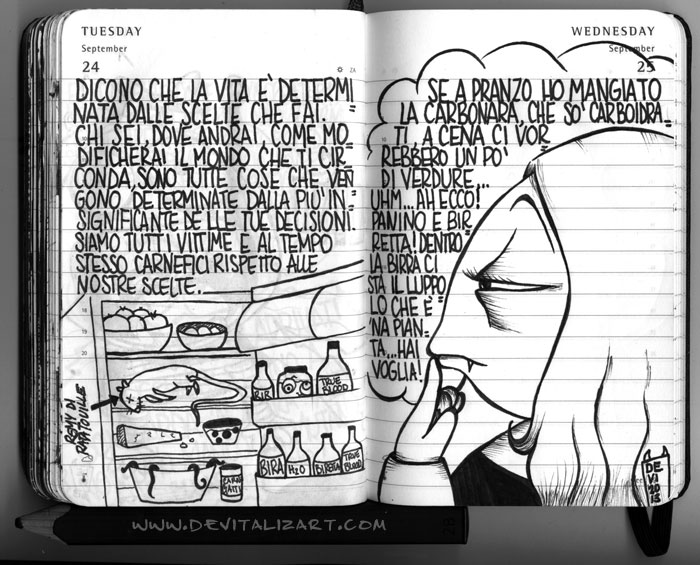 TUESDAY
September
24
ZA
DICONO CHE LA VITA E' DETERMI
NATA DALLE SCELTE CHE FAI.
CHI SEI, DOVE ANDRAI, COME MO=
DIFICHERAI IL MONDO CHE TI CIR=
CONDA, SONO TUTTE COSE CHE VEN
GONO DETERMINATE DALLA PIU' IN=
SIGNIFICANTE DELLE TUE DECISIONI.
SIAMO TUTTI VITTIME E AL TEMPO
STESSO CARNEFICI RISPETTO ALLE
NOSTRE SCELTE.
REMY DI
RATATOUILLE
BIR
TRUE
BLOOD
BIRA
H2O
BIRETTA
TRUE
BLOOD
WEDNESDAY
September
25
SE A PRANZO HO MANGIATO
LA CARBONARA, CHE SO' CARBOIDRA=
TI, A CENA CI VOR=
REBBERO UN PO'
DI VERDURE...
UHM... AH ECCO!
PANINO E BIR=
RETTA! DENTRO
LA BIRRA CI
STA IL LUPPO
LO CHE È
'NA PIAN=
TA... HAI
VOGLIA!
DE
VI
2013
WWW.DEVITALIZART.COM
2B